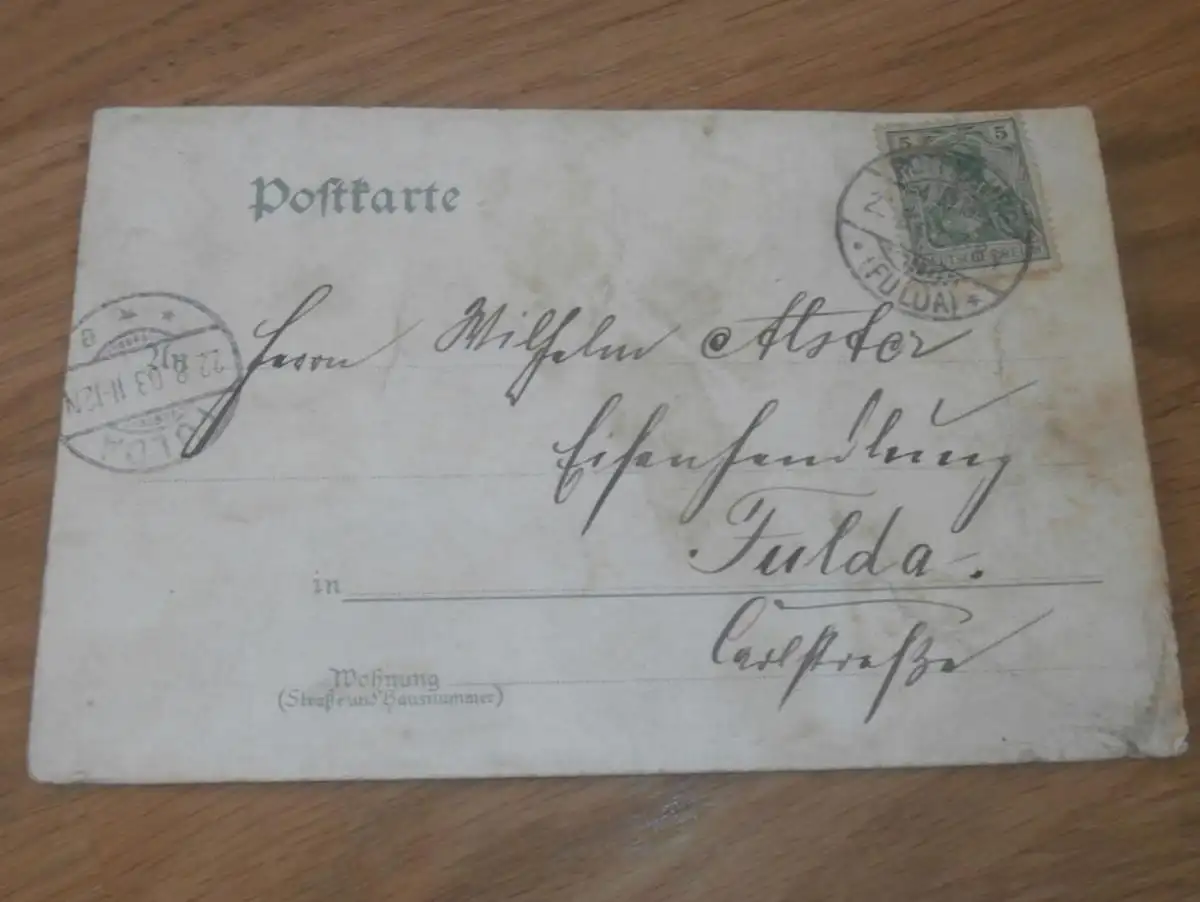 Postkarte
5 5
DEUTSCHES REICH
(FULDA)
FULDA
22.8.03 11-12N
Herrn Wilhelm Alster
Eisenhandlung
Fulda.
in
Carlstraße
Wohnung
(Straße und Hausnummer)